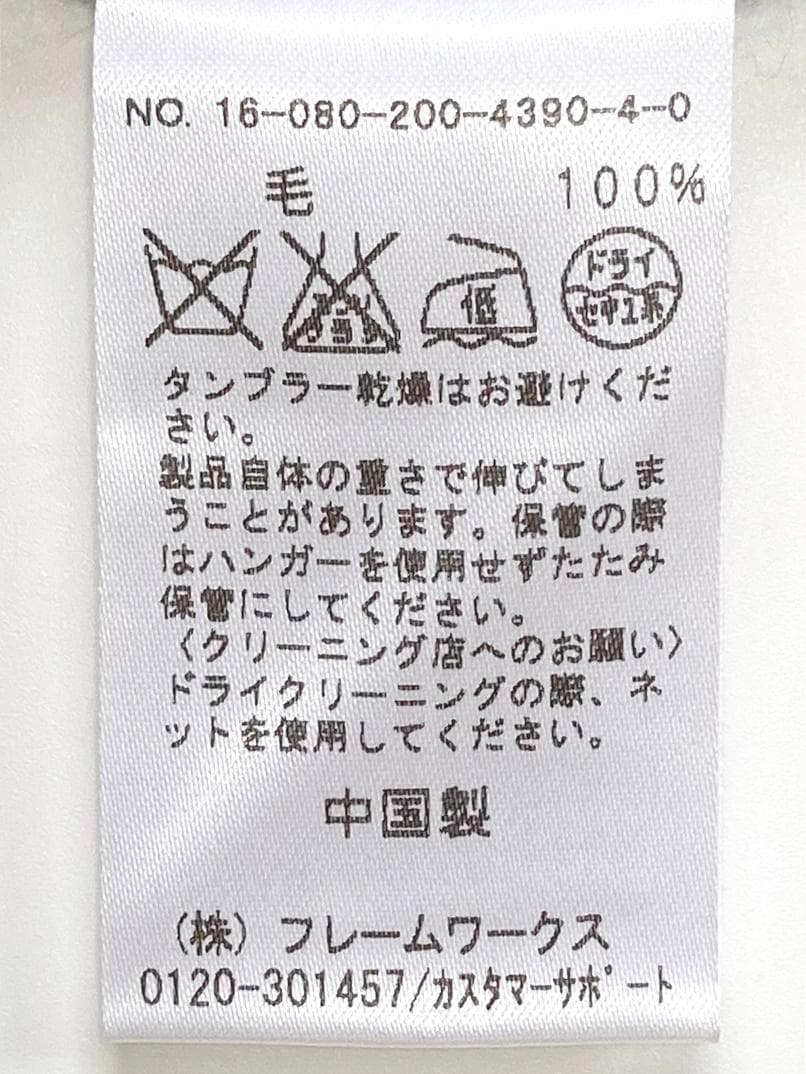 NO. 16-080-200-4390-4-0
毛 100%
エンソ サラシ 低 ドライ セキユ系
タンブラー乾燥はお避けくだ
さい。
製品自体の重さで伸びてしま
うことがあります。保管の際
はハンガーを使用せずたたみ
保管にしてください。
〈クリーニング店へのお願い〉
ドライクリーニングの際、ネ
ットを使用してください。
中国製
(株)フレームワークス
0120-301457/カスタマーサポート